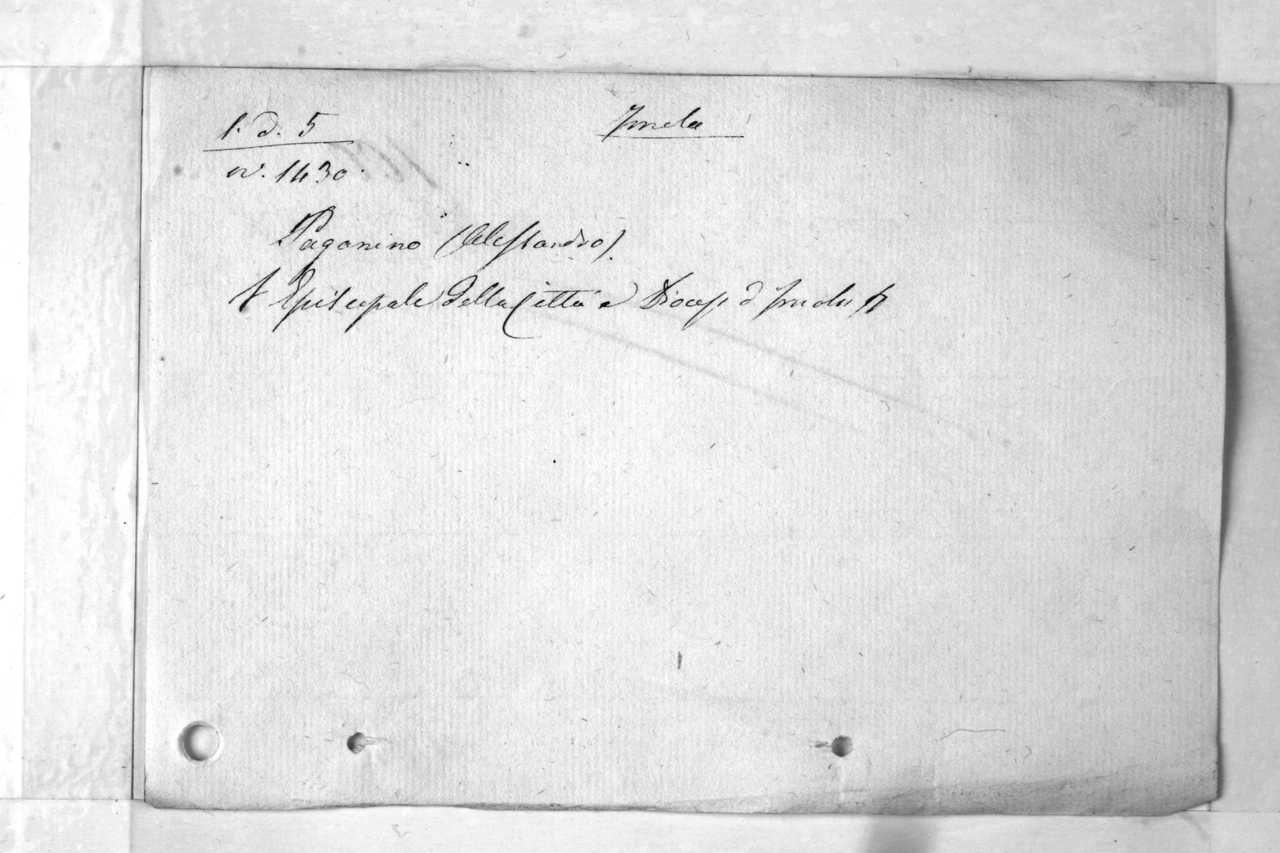 1. d. 5
Imola
n. 1430
Paganino (Alessandro).
Episcopale della Città e Diocesi d'Imola